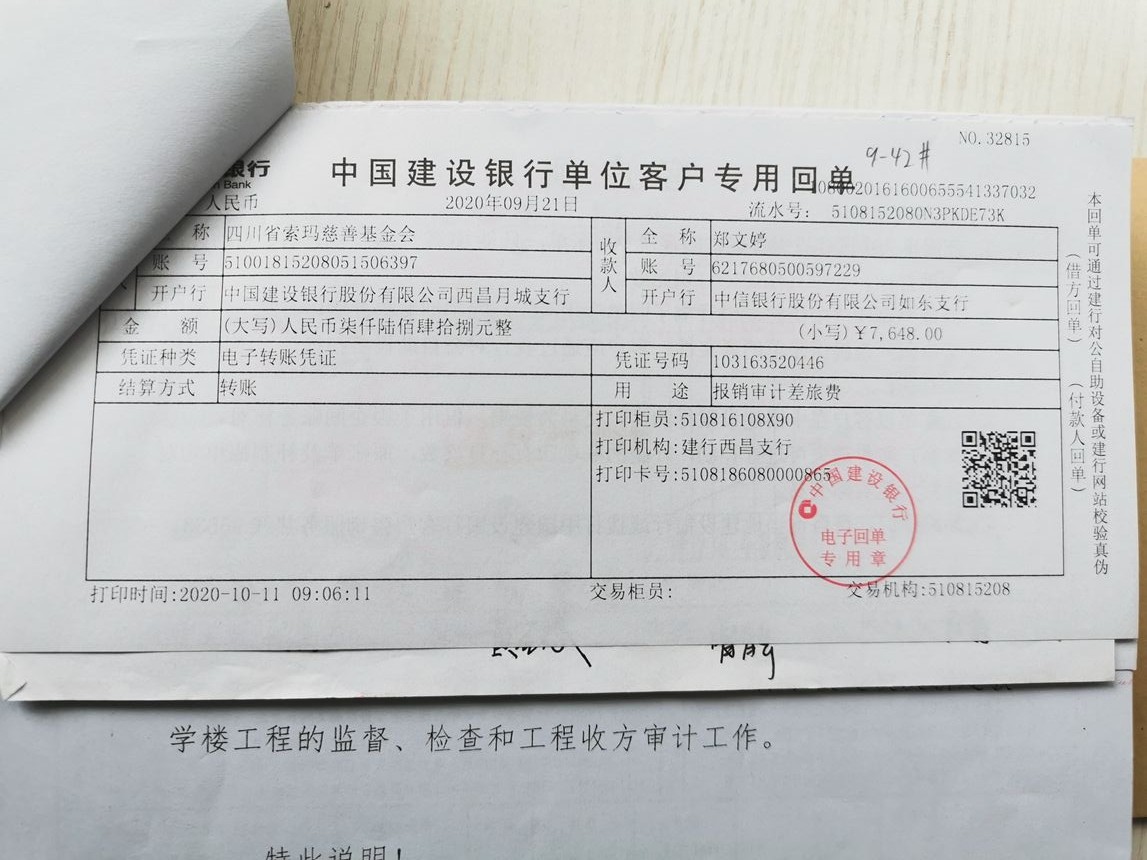 NO.32815
9-42#
银行
Bank
中国建设银行单位客户专用回单
人民币
2020年09月21日
流水号: 5108152080N3PKDE73K
称 四川省索玛慈善基金会
收款人
全称 郑文婷
账号 51001815208051506397
账号 6217680500597229
开户行 中国建设银行股份有限公司西昌月城支行
开户行 中信银行股份有限公司如东支行
金额 (大写)人民币柒仟陆佰肆拾捌元整 (小写)¥7,648.00
凭证种类 电子转账凭证 凭证号码 103163520446
结算方式 转账 用途 报销审计差旅费
打印柜员:510816108X90
打印机构:建行西昌支行
打印卡号:5108186080000865
中国建设银行
电子回单
专用章
打印时间:2020-10-11 09:06:11 交易柜员: 交易机构:510815208
本回单可通过建行对公自助设备或建行网站校验真伪
(借方回单)
(付款人回单)
学楼工程的监督、检查和工程收方审计工作。
特此说明!